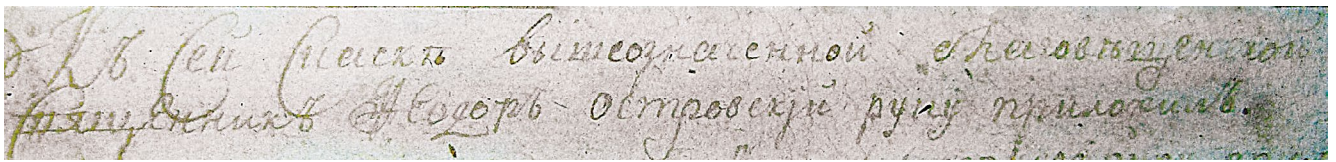 Къ сей скаскѣ вышеозначенной благовѣщенской
священникъ Ѳеодоръ островскій руку приложилъ.